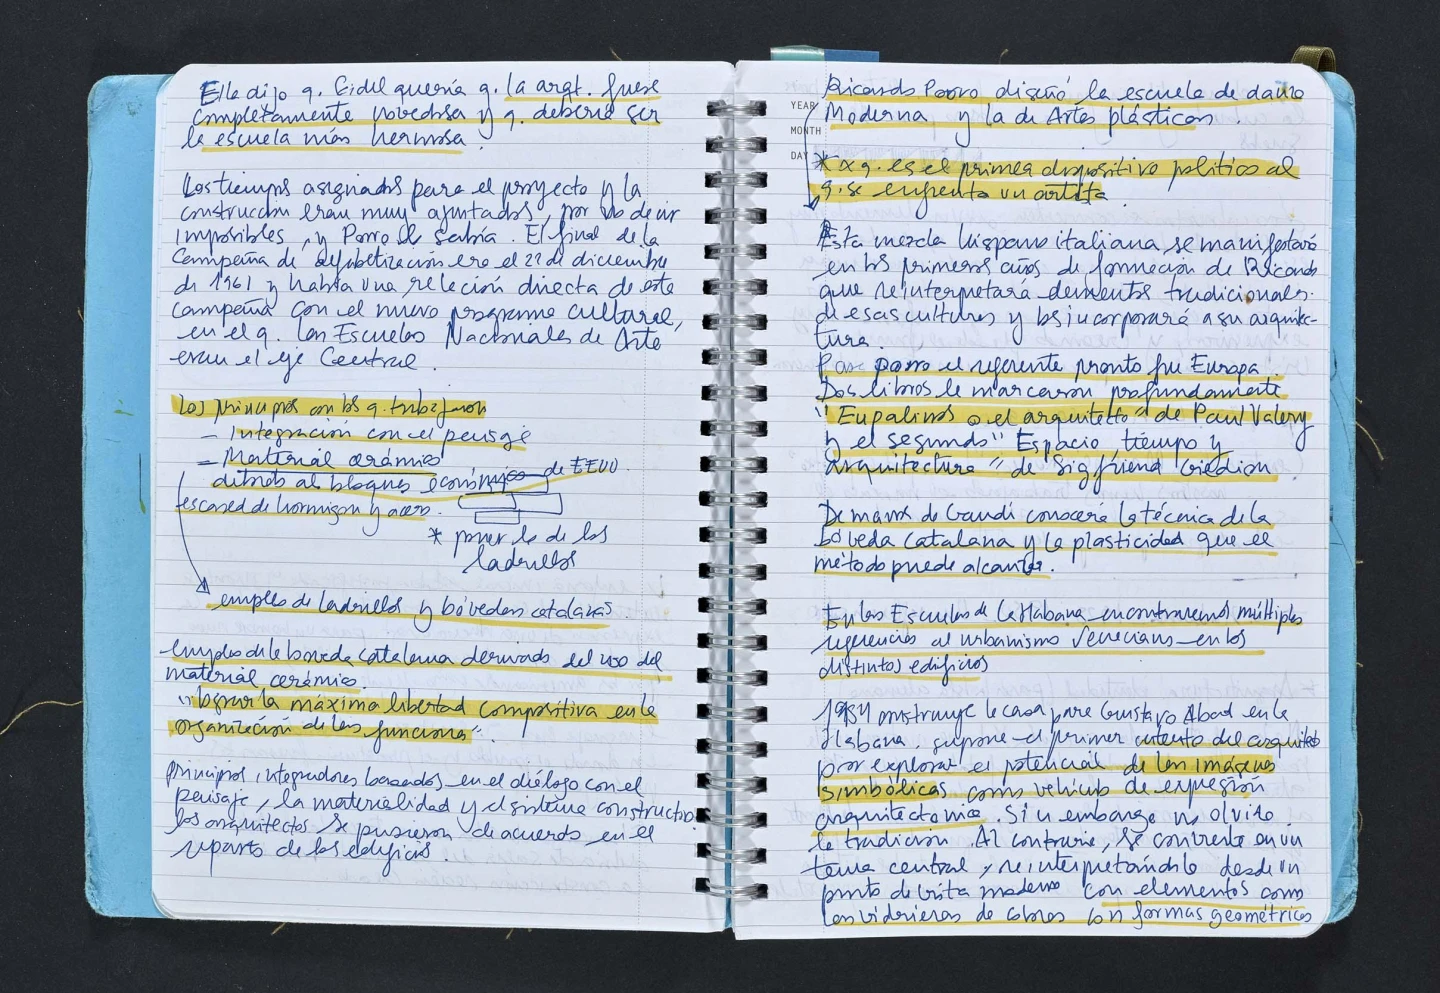 Ella dijo q. Fidel quería q. la arqt. fuese
completamente novedosa y q. debería ser
la escuela más hermosa.
Los tiempos asignados para el proyecto y la
construccion eran muy ajustados, por no decir
imposibles, y Porro lo sabía. El final de la
Campaña de alfabetización era el 22 de diciembre
de 1961 y había una relación directa de esta
campaña con el nuevo programa cultural,
en el q. las Escuelas Nacionales de Arte
eran el eje Central.
Los principios con los q. trabajaron
- Integración con el paisaje
- Material cerámico
debido al bloqueo económico de EEUU.
escased de hormigon y acero.
* poner lo de los
ladrillos
empleo de ladrillos y bóvedas catalanas
empleo de la boveda catalana derivado del uso del
material cerámico.
"lograr la máxima libertad compositiva en la
organización de las funciones".
principios integradores basados en el diálogo con el
paisaje, la materialidad y el sistema constructivo.
los arquitectos se pusieron de acuerdo en el
reparto de los edificios.
Ricardo Porro diseñó la escuela de danza
YEAR
Moderna y la de Artes plásticas.
MONTH
DAY
* x q. es el primer dispositivo politico al
q. se enfrenta un artista.
Esta mezcla hispano italiana se manifestará
en los primeros años de formación de Ricardo
que reinterpretará elementos tradicionales
de esas culturas y los incorporará a su arquitec-
tura.
Para porro el referente pronto fue Europa.
Dos libros le marcaron profundamente
"Eupalinos o el arquitecto" de Paul Valery
y el segundo "Espacio, tiempo y
arquitectura" de Sigfried Giedion
De mano de Gaudí conocerá la técnica de la
bóveda catalana y la plasticidad que el
método puede alcanzar.
En las Escuelas de La Habana encontraremos múltiples
referencias al urbanismo Veneciano en los
distintos edificios
1954 construye la casa para Gustavo Abad en la
Habana, supone el primer intento del arquitecto
por explorar el potencial de las imágenes
simbólicas como vehículo de expresión
arquitectonica. Sin embargo no olvida
la tradición. Al contrario, se convierte en un
tema central, reinterpretándolo desde un
punto de vista moderno con elementos como
las vidrieras de colores con formas geométricas